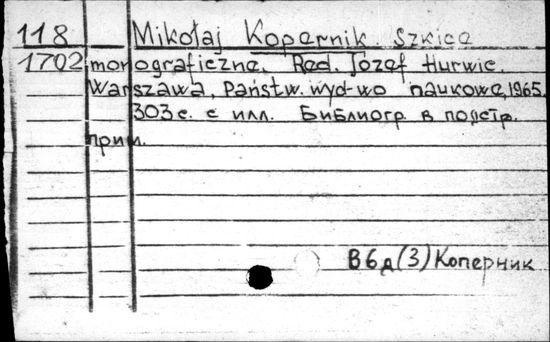 118 Mikołaj Kopernik Szkice
1702 monograficzne. Red. Józef Hurwic.
Warszawa, Państw. wyd-wo naukowe, 1965.
303 с. с илл. Библиогр. в подстр.
прим.
В6д(3)Коперник